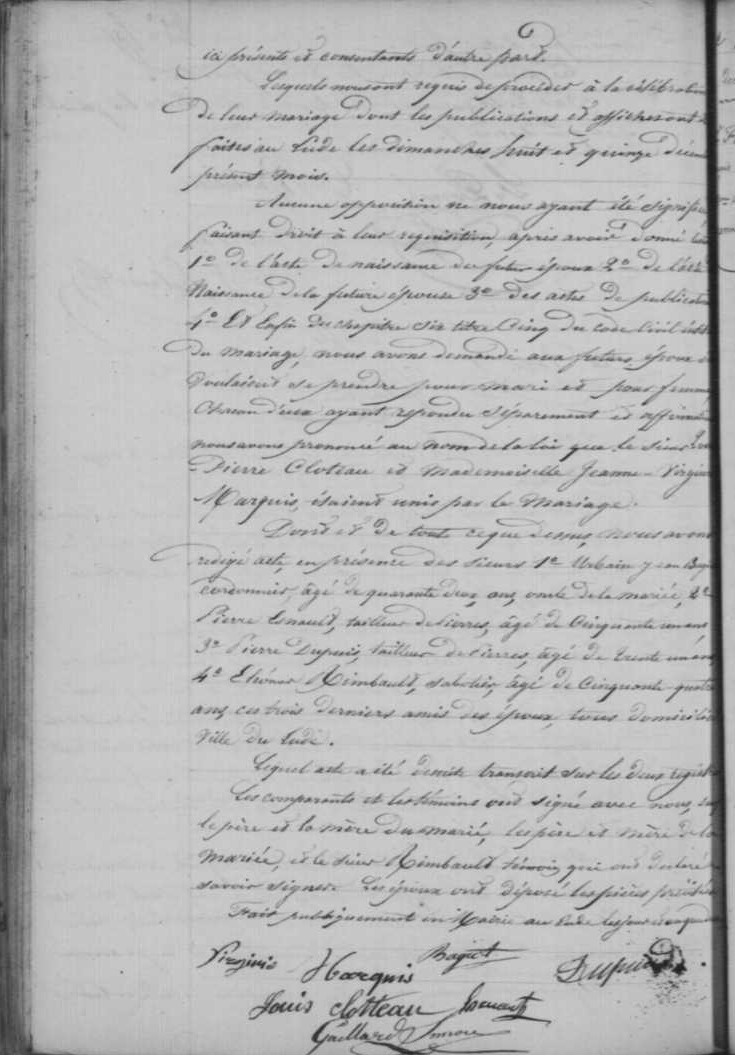 ici présents et consentants d'autre part.
Lesquels nous ont requis de procéder à la célébration
de leur mariage dont les publications et affiches ont
faites au Lude les dimanches huit et quinze
présent mois.
Aucune opposition ne nous ayant été signifiée
faisant droit à leur requisition, après avoir donné
1º de l'acte de naissance du futur époux 2º de
Naissance de la future épouse 3º des actes de publication
4º Et Enfin du chapitre six titre Cinq du code Civil
du Mariage, nous avons demandé aux futurs époux
Voulaient se prendre pour mari et pour femme
Chacun d'eux ayant répondu séparément et
nous avons prononcé au nom de la loi que le sieur
Pierre Cloteau et Mademoiselle Jeanne-Virginie
Marquis, étaient unis par le Mariage.
Dont et de tout ce que dessus, nous avons
redigé acte, en présence des sieurs 1º Urbain Jean
cordonnier, âgé de quarante deux ans, oncle de la mariée, 2º
Pierre Esnault, tailleur de Pierres, âgé de Cinquante un ans
3º Pierre Dupuis, tailleur de Pierres, âgé de trente un ans
4º Rimbault, sabotier, âgé de Cinquante quatre
ans, ces trois derniers amis des époux, tous domiciliés
Ville du Lude.
Lequel acte a été de suite transcrit sur les deux registres
Les comparants et les témoins ont signé avec nous,
le père et la mère du marié, les père et mère de la
Mariée, et le sieur Rimbault témoin qui ont déclaré
savoir signer. Les époux ont déposé les pièces
Fait publiquement en Mairie au Lude les jour
Virginie Marquis Baguet Dupuis
Louis Clotteau Esnault
Gaillard